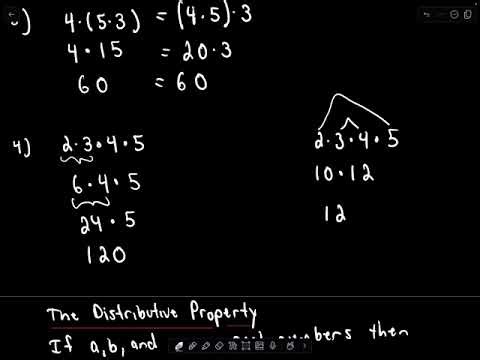 4·(5·3) = (4·5)·3
4·15 = 20·3
60 = 60
4) 2·3·4·5
6·4·5
24·5
120
2·3·4·5
10·12
12
The Distributive Property
If a, b, and numbers then